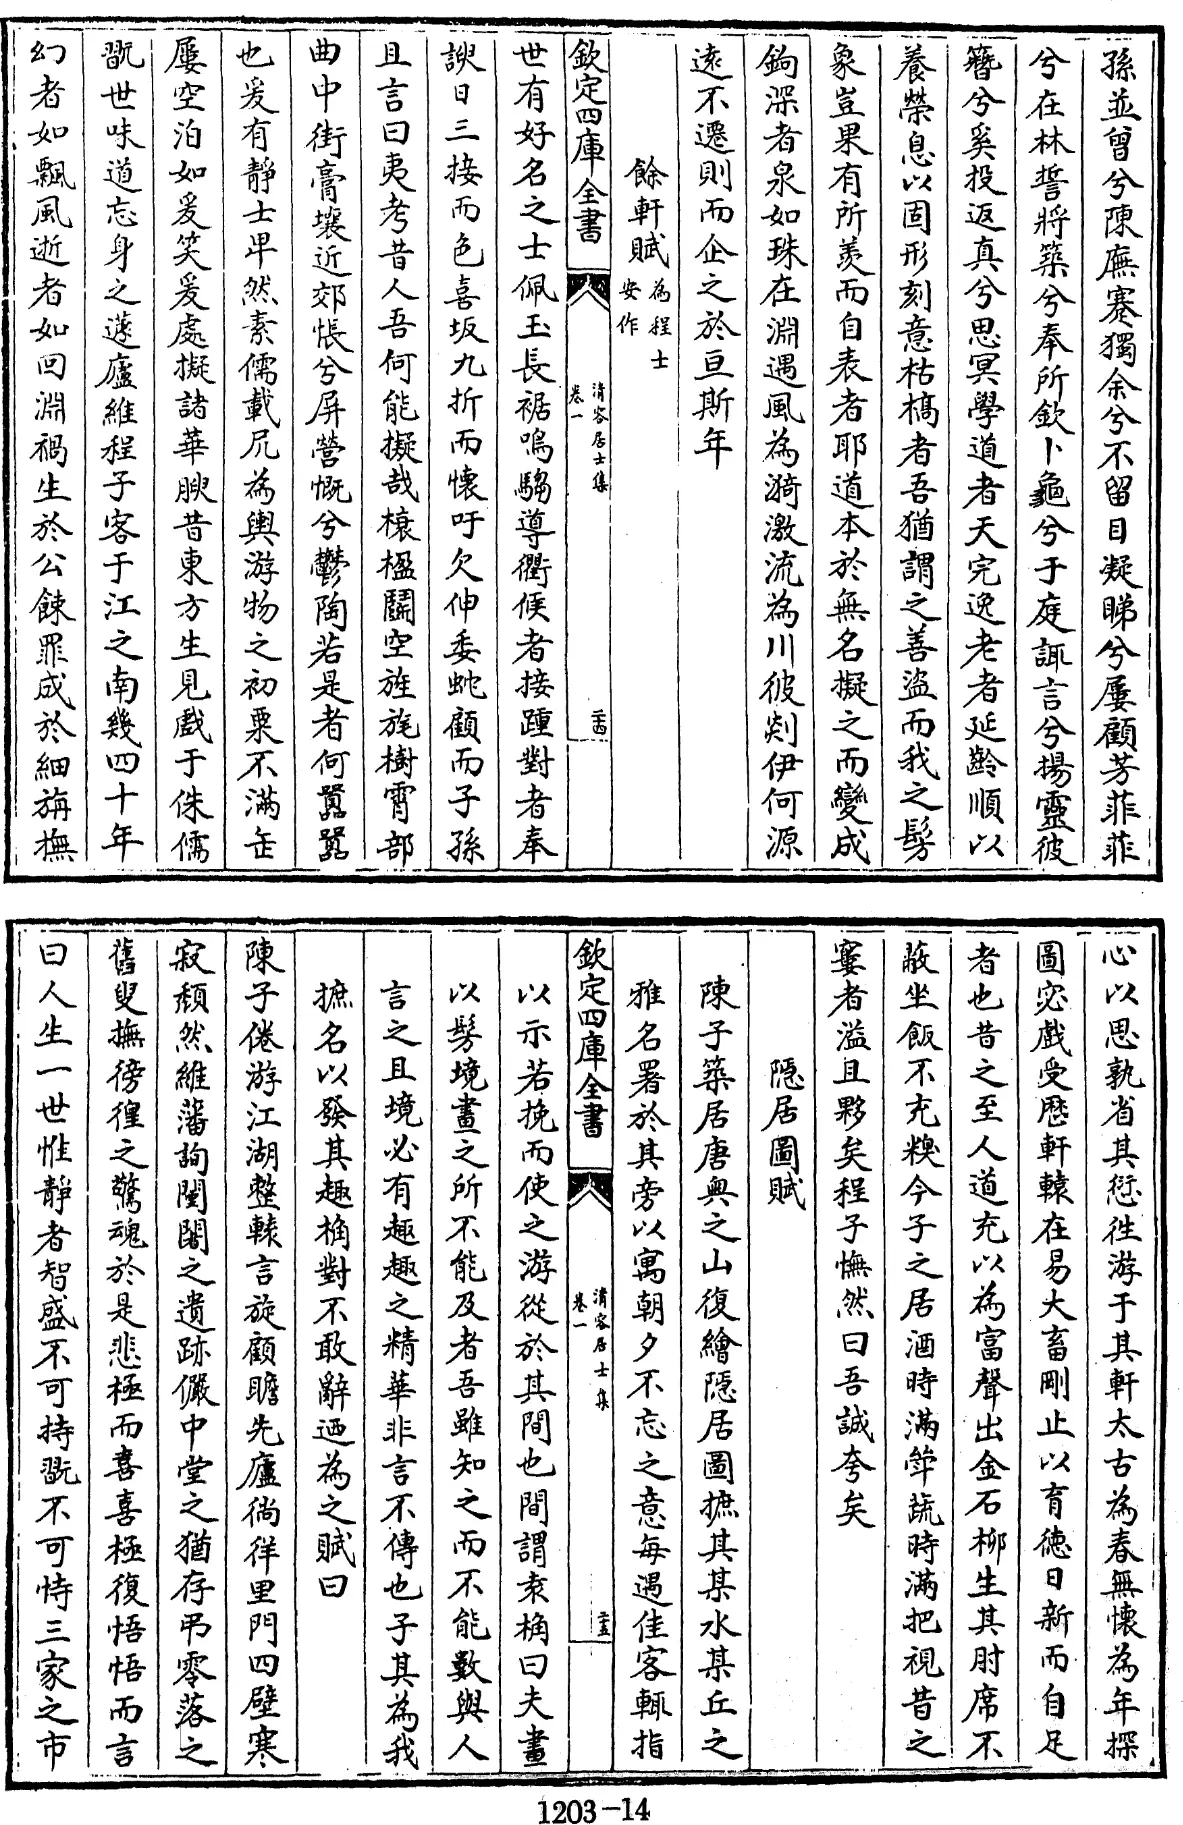 孫並曾兮陳廡蹇獨余兮不留目凝睇兮屢顧芳菲菲
兮在林誓將築兮奉所欽卜龜兮于庭諏言兮揚靈彼
簪兮奚投返真兮思冥學道者天完逸老者延齡順以
養榮息以固形刻意枯槁者吾猶謂之善盜而我之髣
象豈果有所羨而自表者耶道本於無名擬之而變成
鉤深者泉如珠在淵遇風為漪激流為川彼剡伊何源
遠不遷則而企之於亘斯年
餘軒賦為程士安作
欽定四庫全書
清容居士集
卷一
二十四
世有好名之士佩玉長裾鳴騶導衢候者接踵對者奉
諛日三接而色喜坂九折而懷吁欠伸委蛇顧而子孫
且言曰夷考昔人吾何能擬哉榱楹鬬空旌旄樹霄部
曲中街膏壤近郊悵兮屏營慨兮鬱陶若是者何囂囂
也爰有靜士甲然素儒載尻為輿游物之初粟不滿缶
屢空泊如爰笑爰處擬諸華腴昔東方生見戲于侏儒
翫世味道忘身之蘧廬維程子客于江之南幾四十年
幻者如飄風逝者如回淵禍生於公餗罪成於細旃撫
心以思孰省其愆徃游于其軒太古為春無懷為年探
圖宓戲受歷軒轅在易大畜剛止以育德日新而自足
者也昔之至人道充以為富聲出金石柳生其肘席不
蔽坐飯不充糗今子之居酒時滿斝蔬時滿把視昔之
窶者溢且夥矣程子憮然曰吾誠夸矣
隱居圖賦
陳子築居唐奧之山復繪隱居圖摭其某水某丘之
雅名署於其旁以寓朝夕不忘之意每遇佳客輒指
欽定四庫全書
清容居士集
卷一
二十五
以示若挽而使之游從於其間也間謂袁桷曰夫畫
以髣境畫之所不能及者吾雖知之而不能數與人
言之且境必有趣趣之精華非言不傳也子其為我
摭名以發其趣桷對不敢辭迺為之賦曰
陳子倦游江湖整轅言旋顧瞻先廬徜徉里門四壁寒
寂頹然維藩詢闉闍之遺跡儼中堂之猶存弔零落之
舊叟撫徬徨之驚魂於是悲極而喜喜極復悟悟而言
曰人生一世惟靜者智盛不可持翫不可恃三家之市
1203-14